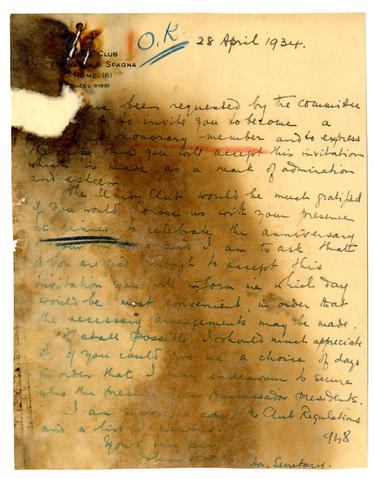 O.K. 28 April 1934.
Club
di Spagna
Rome (6)
Tel 61951
have been requested by the Committee
to invite you to become a
honorary member and to express
that you will accept this invitation
which is made as a mark of admiration
and esteem.
The Union Club would be much gratified
if you would honour us with your presence
at dinner to celebrate the anniversary
and I am to ask that
if you are good enough to accept this
invitation you will inform me which day
would be most convenient, in order that
the necessary arrangements may be made.
If at all possible I should much appreciate
it if you could give me a choice of days
in order that I may endeavour to secure
also the presence of our Ambassador presidents.
I am a copy of the Club Regulations
and a list of members.
948
Yours very
Hn. Secretary.